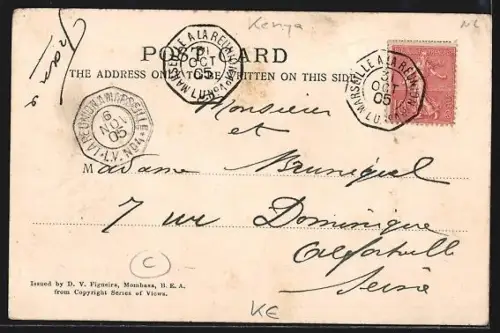 Kenya
POST CARD
THE ADDRESS ONLY TO BE WRITTEN ON THIS SIDE
MARSEILLE A LA REUNION
OCT
05
MARSEILLE A LA REUNION
3
OCT
05
LA REUNION A MARSEILLE
6
NOV
05
L.V.
Monsieur
et
Madame Brunégal
7 rue Dominique
Alfortville
Seine
C
KE
Issued by D. V. Figueira, Mombasa, B. E. A.
from Copyright Series of Views.